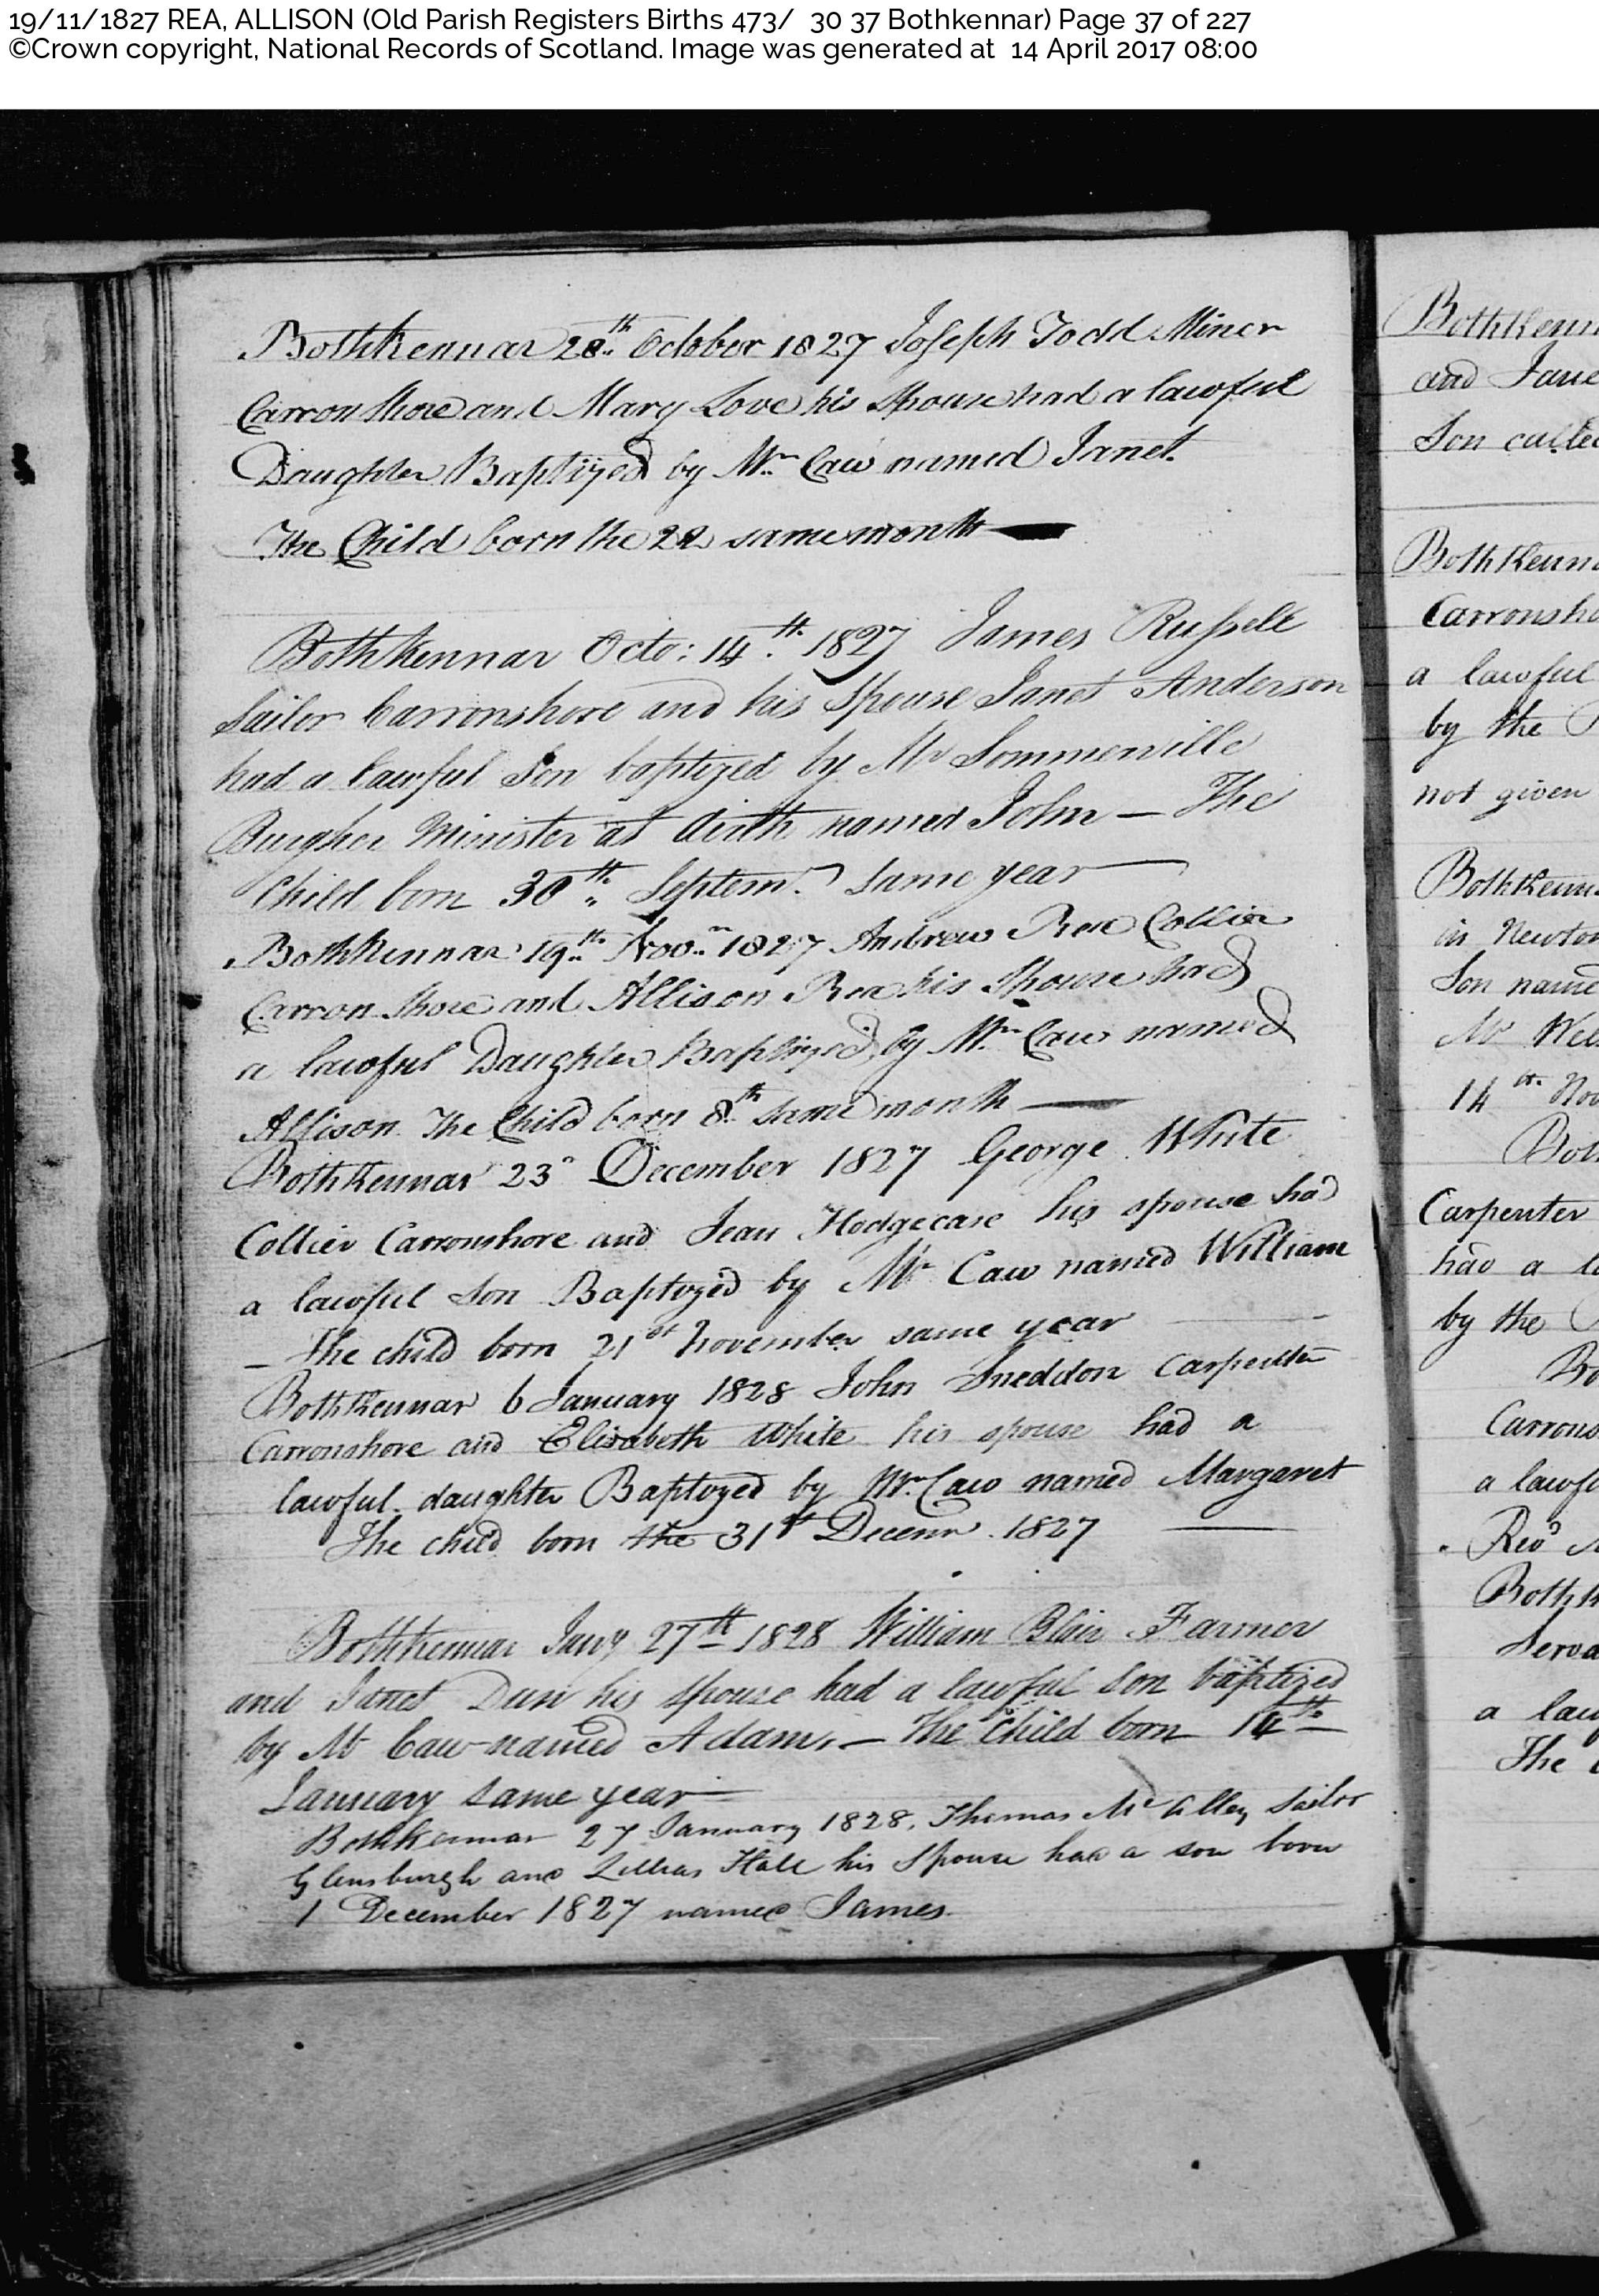 19/11/1827 REA, ALLISON (Old Parish Registers Births 473/ 30 37 Bothkennar) Page 37 of 227
©Crown copyright, National Records of Scotland. Image was generated at 14 April 2017 08:00
Bothkennar 28th October 1827 Joseph Todd Miner
Carron Shore and Mary Love his Spouse had a lawful
Daughter Baptized by Mr Caw named Janet.
The Child born the 22 same month
Bothkennar Octo: 14th 1827 James Russell
Sailor Carronshore and his Spouse Janet Anderson
had a lawful Son baptized by Mr Sommerville
Burgher Minister at named John — The
Child born 30th Septemr same year
Bothkennar 19th Novr 1827 Andrew Rea Collier
Carron Shore and Allison Rea his Spouse had
a lawful Daughter Baptized by Mr Caw named
Allison The Child born 8th same month
Bothkennar 23d December 1827 George White
Collier Carronshore and Jean Hodgecase his spouse had
a lawful Son Baptyzed by Mr Caw named William
— The child born 21st November same year
Bothkennar 6 January 1828 John Sneddon Carpenter
Carronshore and Elisabeth White his spouse had a
lawful daughter Baptyzed by Mr Caw named Margaret
The child born the 31st Decemr 1827
Bothkennar Jany 27th 1828 William Blair Farmer
and Janet Dun his spouse had a lawful son baptized
by Mr Caw named Adam, — The child born 14th
January same year
Bothkennar 27 January 1828, Thomas Mc Alley Sailor
Glensburgh and Lillias Hall his Spouse had a son born
1 December 1827 named James.
and
Son
Carronsho
a lawful
by the
not given
in Newton
Son name
Mr
14th Nov
Carpenter
had a
by the
Carrons
Revd
a law
The